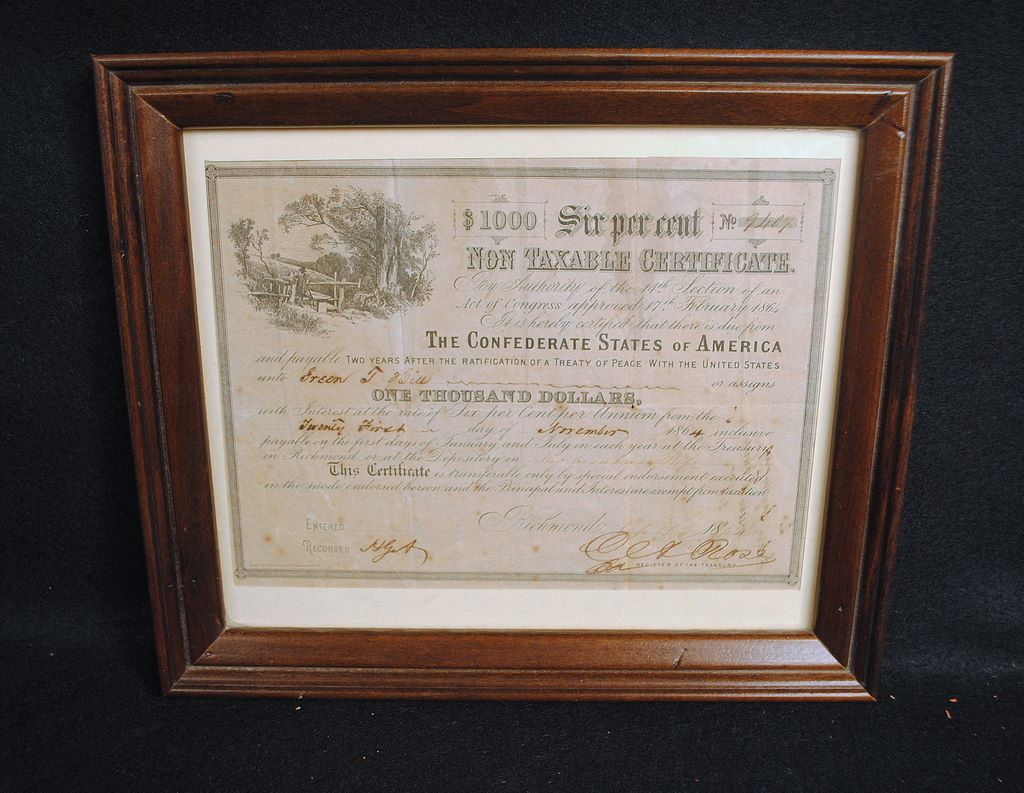 $1000 Six per cent No
NON TAXABLE CERTIFICATE.
By Authority of the 14th Section of an
Act of Congress approved 17th February 1864
It is hereby certified that there is due from
THE CONFEDERATE STATES OF AMERICA
and payable TWO YEARS AFTER THE RATIFICATION OF A TREATY OF PEACE WITH THE UNITED STATES
unto Green T Hill or assigns
ONE THOUSAND DOLLARS.
with Interest at the rate of Six per Cent per Annum from the
Twenty First day of November 1864 inclusive
payable on the first days of January and July in each year at the Treasury
in Richmond or at the Depository in
This Certificate is transferable only by special endorsement executed
in the mode endorsed hereon and the Principal and Interest are exempt from taxation
Richmond 18
ENTERED
RECORDED
REGISTER OF THE TREASURY